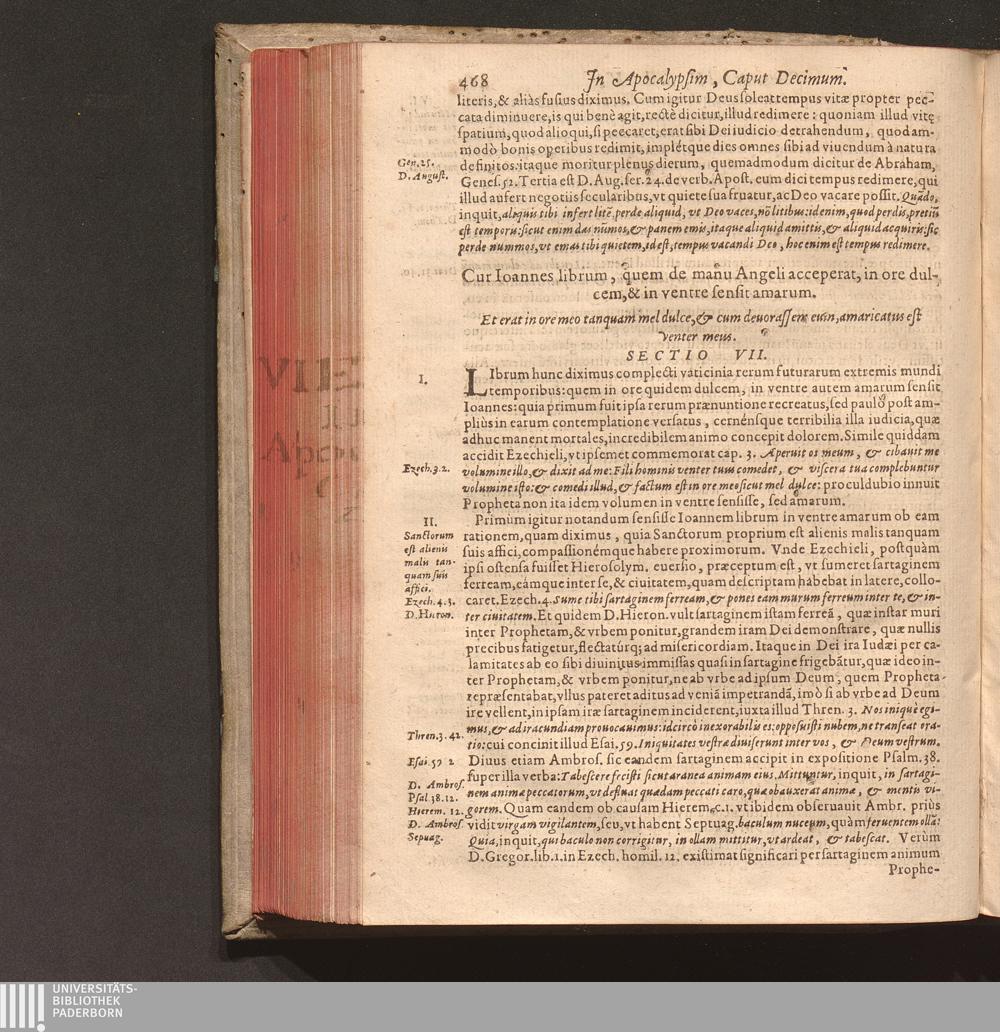 468 In Apocalypsim, Caput Decimum.
literis, & aliàs fusius diximus. Cum igitur Deus soleat tempus vitæ propter pec-
cata diminuere, is qui benè agit, rectè dicitur, illud redimere: quoniam illud vitę
spatium, quod alioqui, si peccaret, erat sibi Dei iudicio detrahendum, quodam-
modò bonis operibus redimit, implétque dies omnes sibi ad viuendum à natura
Gen. 25.
definitos: itaque moritur plenus dierum, quemadmodum dicitur de Abraham,
D. August.
Genes. 52. Tertia est D. Aug. ser. 24. de verb. Apost. eum dici tempus redimere, qui
illud aufert negotiis secularibus, vt quiete sua fruatur, ac Deo vacare possit. Quādo,
inquit, aliquis tibi infert litē, perde aliquid, vt Deo vaces, nō litibus: id enim, quod perdis, pretiū
est temporis: sicut enim das nūmos, & panem emis, itaque aliquid amittis, & aliquid acquiris: sic
perde nummos, vt emas tibi quietem, id est, tempus vacandi Deo, hoc enim est tempus redimere.
Cur Ioannes librum, quem de manu Angeli acceperat, in ore dul-
cem, & in ventre sensit amarum.
Et erat in ore meo tanquam mel dulce, & cum deuorassem eum, amaricatus est
venter meus.
SECTIO VII.
I.
LIbrum hunc diximus complecti vaticinia rerum futurarum extremis mundi
temporibus: quem in ore quidem dulcem, in ventre autem amarum sensit
Ioannes: quia primum fuit ipsa rerum prænuntione recreatus, sed paulò post am-
pliùs in earum contemplatione versatus, cernénsque terribilia illa iudicia, quæ
adhuc manent mortales, incredibilem animo concepit dolorem. Simile quiddam
accidit Ezechieli, vt ipsemet commemorat cap. 3. Aperuit os meum, & cibauit me
Ezech. 3. 2.
volumine illo, & dixit ad me: Fili hominis venter tuus comedet, & viscera tua complebuntur
volumine isto: & comedi illud, & factum est in ore meo sicut mel dulce: proculdubio innuit
Propheta non ita idem volumen in ventre sensisse, sed amarum.
II.
Primùm igitur notandum sensisse Ioannem librum in ventre amarum ob eam
Sanctorum
rationem, quam diximus, quia Sanctorum proprium est alienis malis tanquam
est alienis
suis affici, compassionémque habere proximorum. Vnde Ezechieli, postquàm
malis tan-
ipsi ostensa fuisset Hierosolym. euersio, præceptum est, vt sumeret sartaginem
quam suis
affici.
ferream, eámque inter se, & ciuitatem, quam descriptam habebat in latere, collo-
Ezech. 4. 3.
caret. Ezech. 4. Sume tibi sartaginem ferream, & pones eam murum ferreum inter te, & in-
D. Hieron.
ter ciuitatem. Et quidem D. Hieron. vult sartaginem istam ferreā, quæ instar muri
inter Prophetam, & vrbem ponitur, grandem iram Dei demonstrare, quæ nullis
precibus fatigetur, flectatúrq; ad misericordiam. Itaque in Dei ira Iudæi per ca-
lamitates ab eo sibi diuinitus immissas quasi in sartagine frigebātur, quæ ideo in-
ter Prophetam, & vrbem ponitur, ne ab vrbe ad ipsum Deum, quem Propheta
repræsentabat, vllus pateret aditus ad veniā impetrandā, imò si ab vrbe ad Deum
ire vellent, in ipsam iræ sartaginem inciderent, iuxta illud Thren. 3. Nos iniquè egi-
mus, & ad iracundiam prouocauimus: idcircò inexorabilis es: opposuisti nubem, ne transeat ora-
Thren. 3. 42.
tio: cui concinit illud Esai. 59. Iniquitates vestræ diuiserunt inter vos, & Deum vestrum.
Esai. 59 2
Diuus etiam Ambros. sic eandem sartaginem accipit in expositione Psalm. 38.
super illa verba: Tabescere fecisti sicut aranea animam eius. Mittuntur, inquit, in sartagi-
D. Ambros.
nem animæ peccatorum, vt defluat quædam peccati caro, quæ obduxerat animæ, & mentis vi-
Psal. 38. 12.
Hierem. 12.
gorem. Quam eandem ob causam Hierem. c. 1. vt ibidem obseruauit Ambr. priùs
D. Ambros.
vidit virgam vigilantem, seu, vt habent Septuag. baculum nuceum, quàm feruentem ollā:
Septuag.
Quia, inquit, qui baculo non corrigitur, in ollam mittitur, vt ardeat, & tabescat. Verùm
D. Gregor. lib. 1. in Ezech. homil. 12. existimat significari per sartaginem animum
Prophe-
UNIVERSITÄTS-
BIBLIOTHEK
PADERBORN